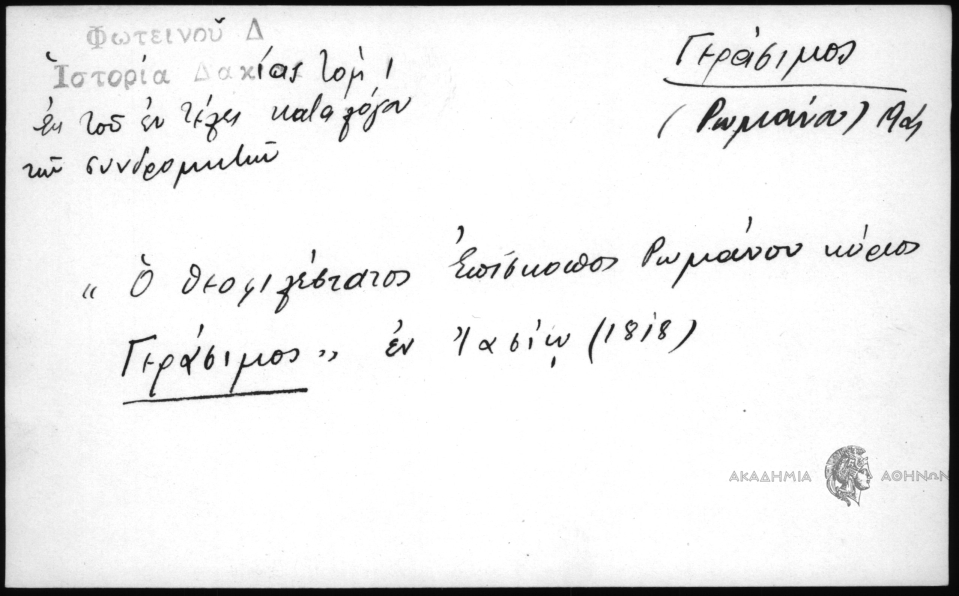 Φωτεινοῦ Δ
Ἱστορία Δακίας Τομ 1
ἐκ τοῦ ἐν τέλει καταλόγου
τῶν συνδρομητῶν
Γεράσιμος
(Ρωμάνου)
"Ὁ Θεοφιλέστατος Ἐπίσκοπος Ρωμάνου κύριος
Γεράσιμος" ἐν Ἰασίῳ (1818)
ΑΚΑΔΗΜΙΑ ΑΘΗΝΩΝ